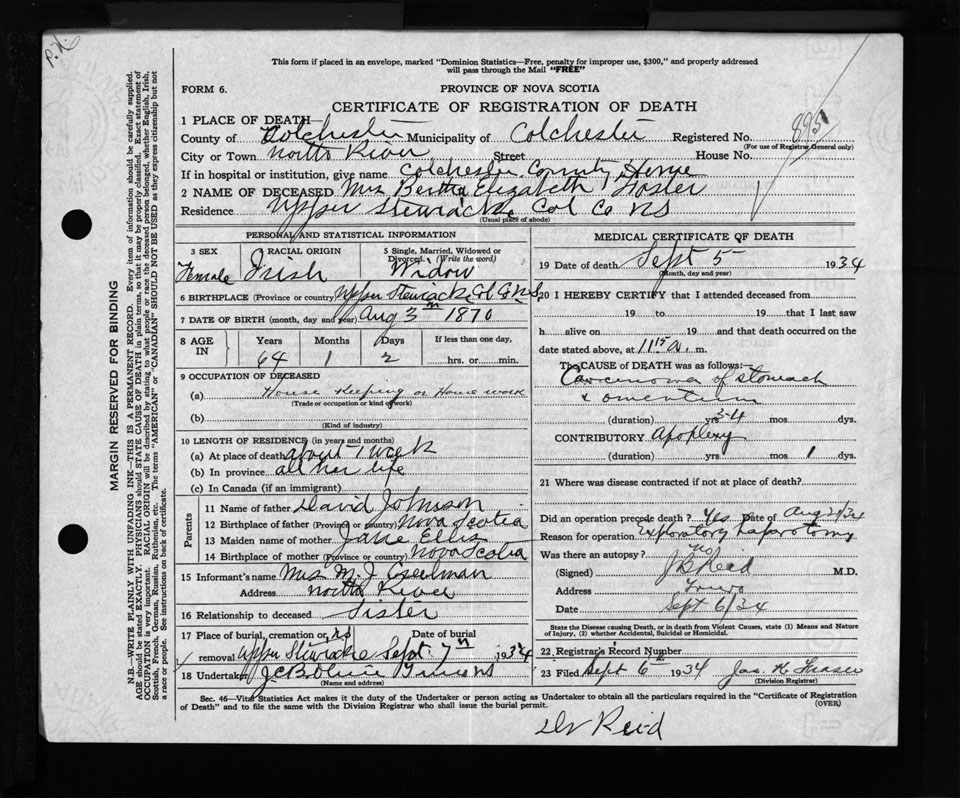 P.N.
This form if placed in an envelope, marked "Dominion Statistics—Free, penalty for improper use, $300," and properly addressed
will pass through the Mail "FREE"
FORM 6.
PROVINCE OF NOVA SCOTIA
CERTIFICATE OF REGISTRATION OF DEATH
1 PLACE OF DEATH—
County of Colchester Municipality of Colchester Registered No. 895
(For use of Registrar General only)
City or Town North River Street House No.
If in hospital or institution, give name Colchester County Home
2 NAME OF DECEASED Mrs Bertha Elizabeth Foster
Residence Upper Stewiacke Col Co NS
(Usual place of abode)
PERSONAL AND STATISTICAL INFORMATION
3 SEX RACIAL ORIGIN 5 Single, Married, Widowed or
Divorced. (Write the word)
Female Irish Widow
6 BIRTHPLACE (Province or country) Upper Stewiacke Col Co N.S.
7 DATE OF BIRTH (month, day and year) Aug 3 1870
8 AGE IN Years Months Days If less than one day,
64 1 2 hrs. or min.
9 OCCUPATION OF DECEASED
(a) House Keeping or House work
(Trade or occupation or kind of work)
(b)
(Kind of industry)
10 LENGTH OF RESIDENCE (in years and months)
(a) At place of death about 1 week
(b) In province all her life
(c) In Canada (if an immigrant)
Parents
11 Name of father David Johnson
12 Birthplace of father (Province or country) Nova Scotia
13 Maiden name of mother Jane Ellis
14 Birthplace of mother (Province or country) Nova Scotia
15 Informant's name Mrs M. J. Creelman
Address North River
16 Relationship to deceased Sister
17 Place of burial, cremation or Date of burial
removal Upper Stewiacke Sept 7 1934
18 Undertaker
(Name and address)
MEDICAL CERTIFICATE OF DEATH
19 Date of death Sept 5 1934
(Month, day and year)
20 I HEREBY CERTIFY that I attended deceased from
19 to 19 that I last saw
h alive on 19 and that death occurred on the
date stated above, at 11 15 a. m.
The CAUSE of DEATH was as follows:—
Carcinoma of stomach
& omentum
(duration) yrs 3-4 mos. dys.
CONTRIBUTORY Apoplexy
(duration) yrs. mos. 1 dys.
21 Where was disease contracted if not at place of death?
Did an operation precede death? Yes Date of Aug 21/34
Reason for operation Exploratory Laparotomy
Was there an autopsy? No
(Signed) M.D.
Address Truro
Date Sept 6/34
State the Disease causing Death, or in death from Violent Causes, state (1) Means and
Nature of Injury, (2) whether Accidental, Suicidal or Homicidal.
22 Registrar's Record Number
23 Filed Sept 6 1934 Jas. K. Fraser
(Division Registrar)
Sec. 46—Vital Statistics Act makes it the duty of the Undertaker or person acting as Undertaker to obtain all the particulars required in the "Certificate of Registration
of Death" and to file the same with the Division Registrar who shall issue the burial permit.
(OVER)
Dr Reid
MARGIN RESERVED FOR BINDING
N.B.—WRITE PLAINLY WITH UNFADING INK—THIS IS A PERMANENT RECORD. Every item of information should be carefully supplied.
AGE should be stated EXACTLY. PHYSICIANS should STATE CAUSE OF DEATH in plain terms, so that it may be properly classified. Exact statement of
OCCUPATION is very important. RACIAL ORIGIN will be described by stating to what people or race the deceased person belonged, whether English, Irish,
Scottish, French, German, Russian, Ruthenian, etc. The terms "AMERICAN" or "CANADIAN" SHOULD NOT BE USED as they express citizenship but not
a race or people. See instructions on back of certificate.